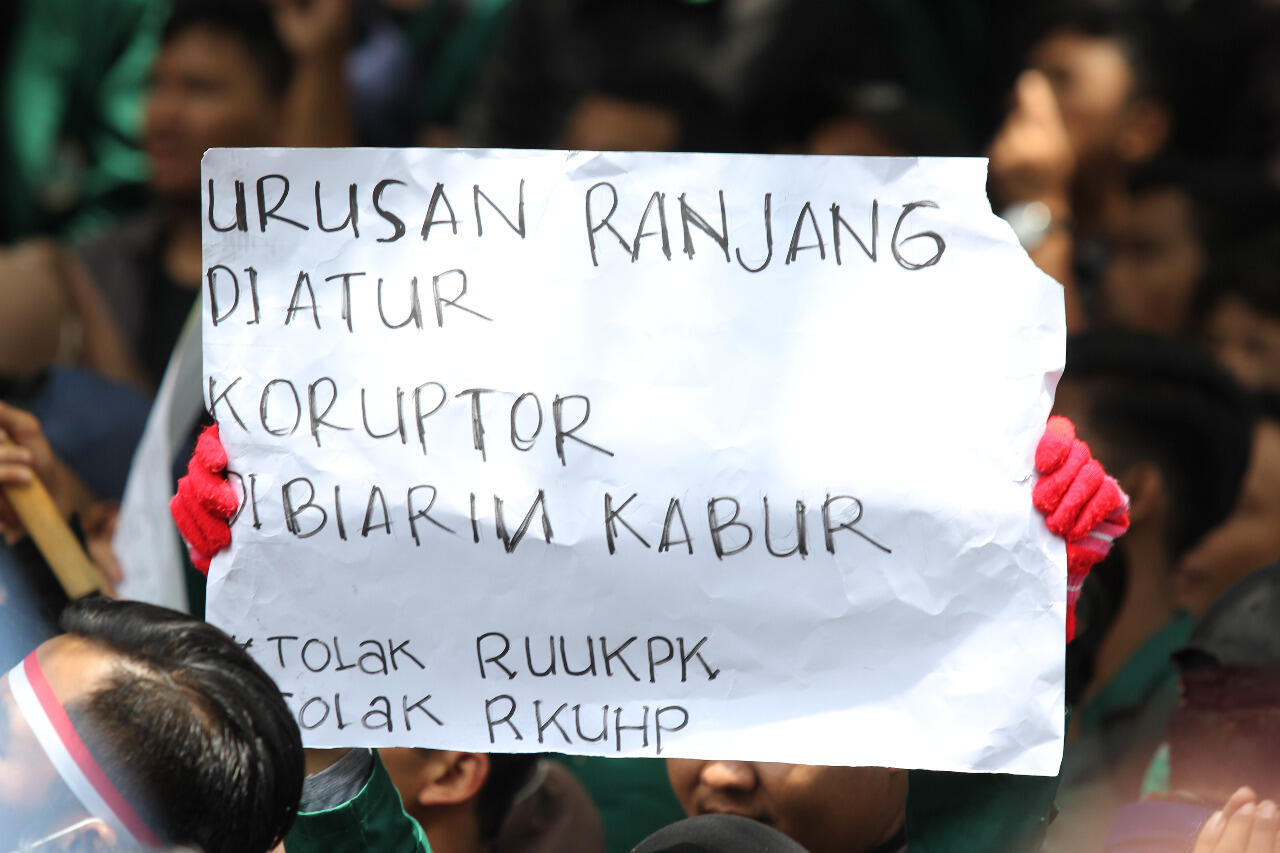 URUSAN RANJANG
DIATUR
KORUPTOR
DIBIARIN KABUR
#TOLAK RUUKPK
TOLAK RKUHP